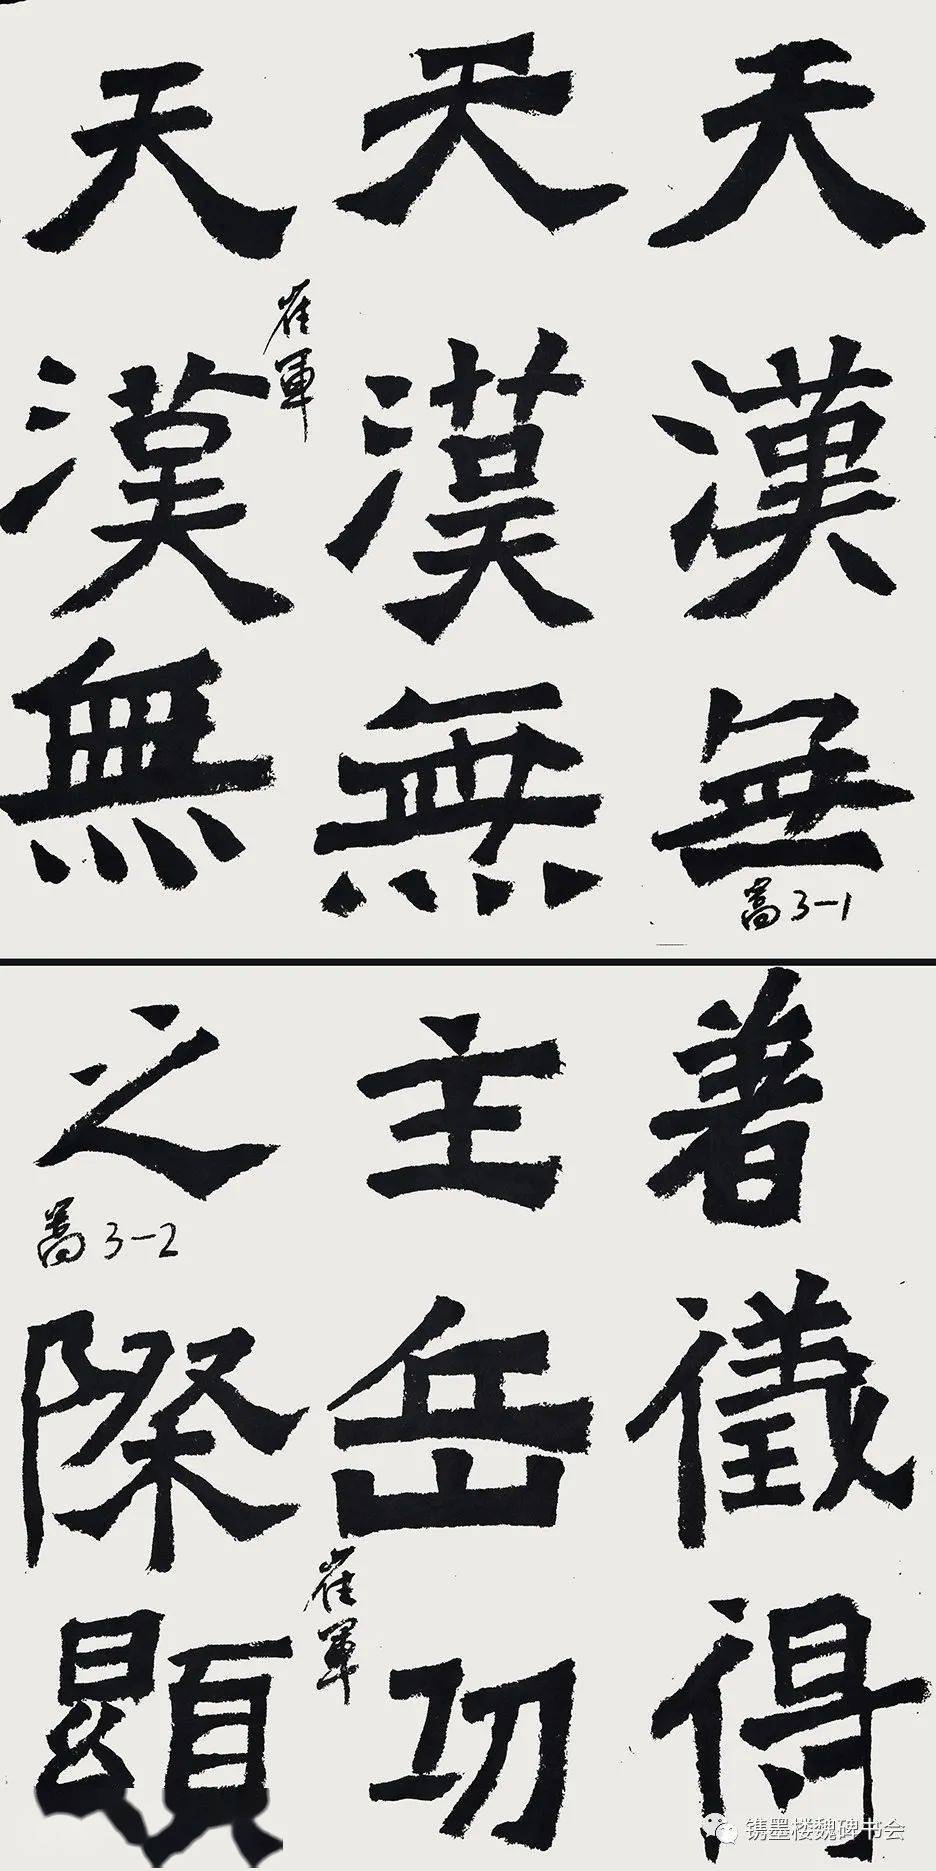 天漢無
嵩3-1
天漢無
天漢無
崔軍
著儀得
主岳功
崔軍
之際顯
嵩3-2
镌墨楼魏碑书会